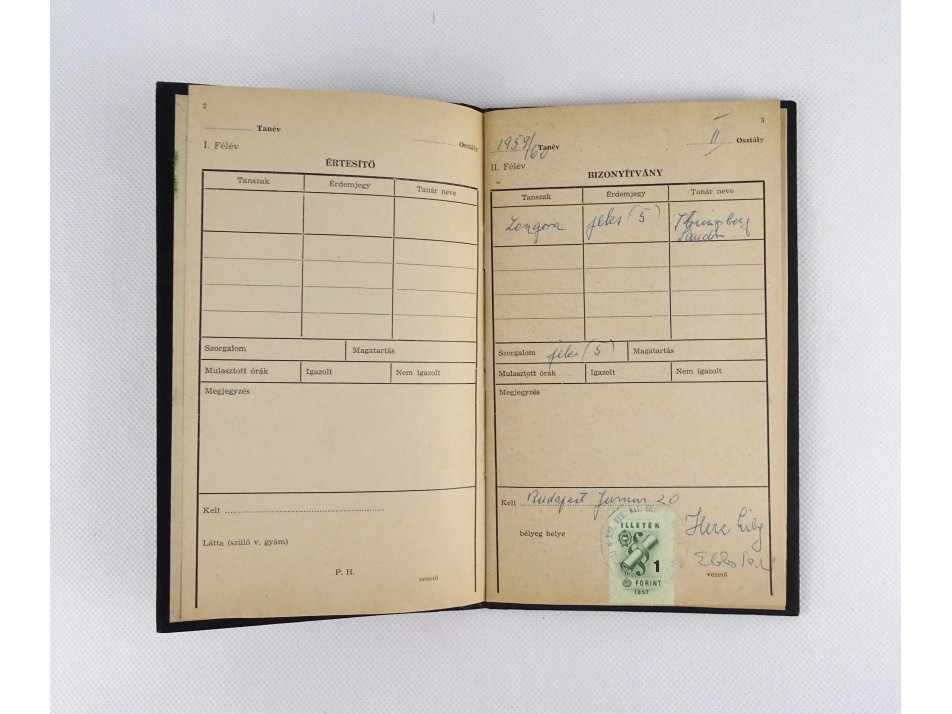 2
.............. Tanév
............ Osztály
I. Félév
ÉRTESÍTŐ
Tanszak Érdemjegy Tanár neve
Szorgalom Magatartás
Mulasztott órák Igazolt Nem igazolt
Megjegyzés
Kelt ..............................................
Látta (szülő v. gyám)
P. H.
vezető
3
1959/60 Tanév
II Osztály
II. Félév
BIZONYÍTVÁNY
Tanszak Érdemjegy Tanár neve
Zongora jeles (5)
Sándor
Szorgalom jeles (5) Magatartás
Mulasztott órák Igazolt Nem igazolt
Megjegyzés
Kelt Budapest Junius 20
bélyeg helye
ILLETÉK
1
FORINT
1957
Herz Lily
vezető